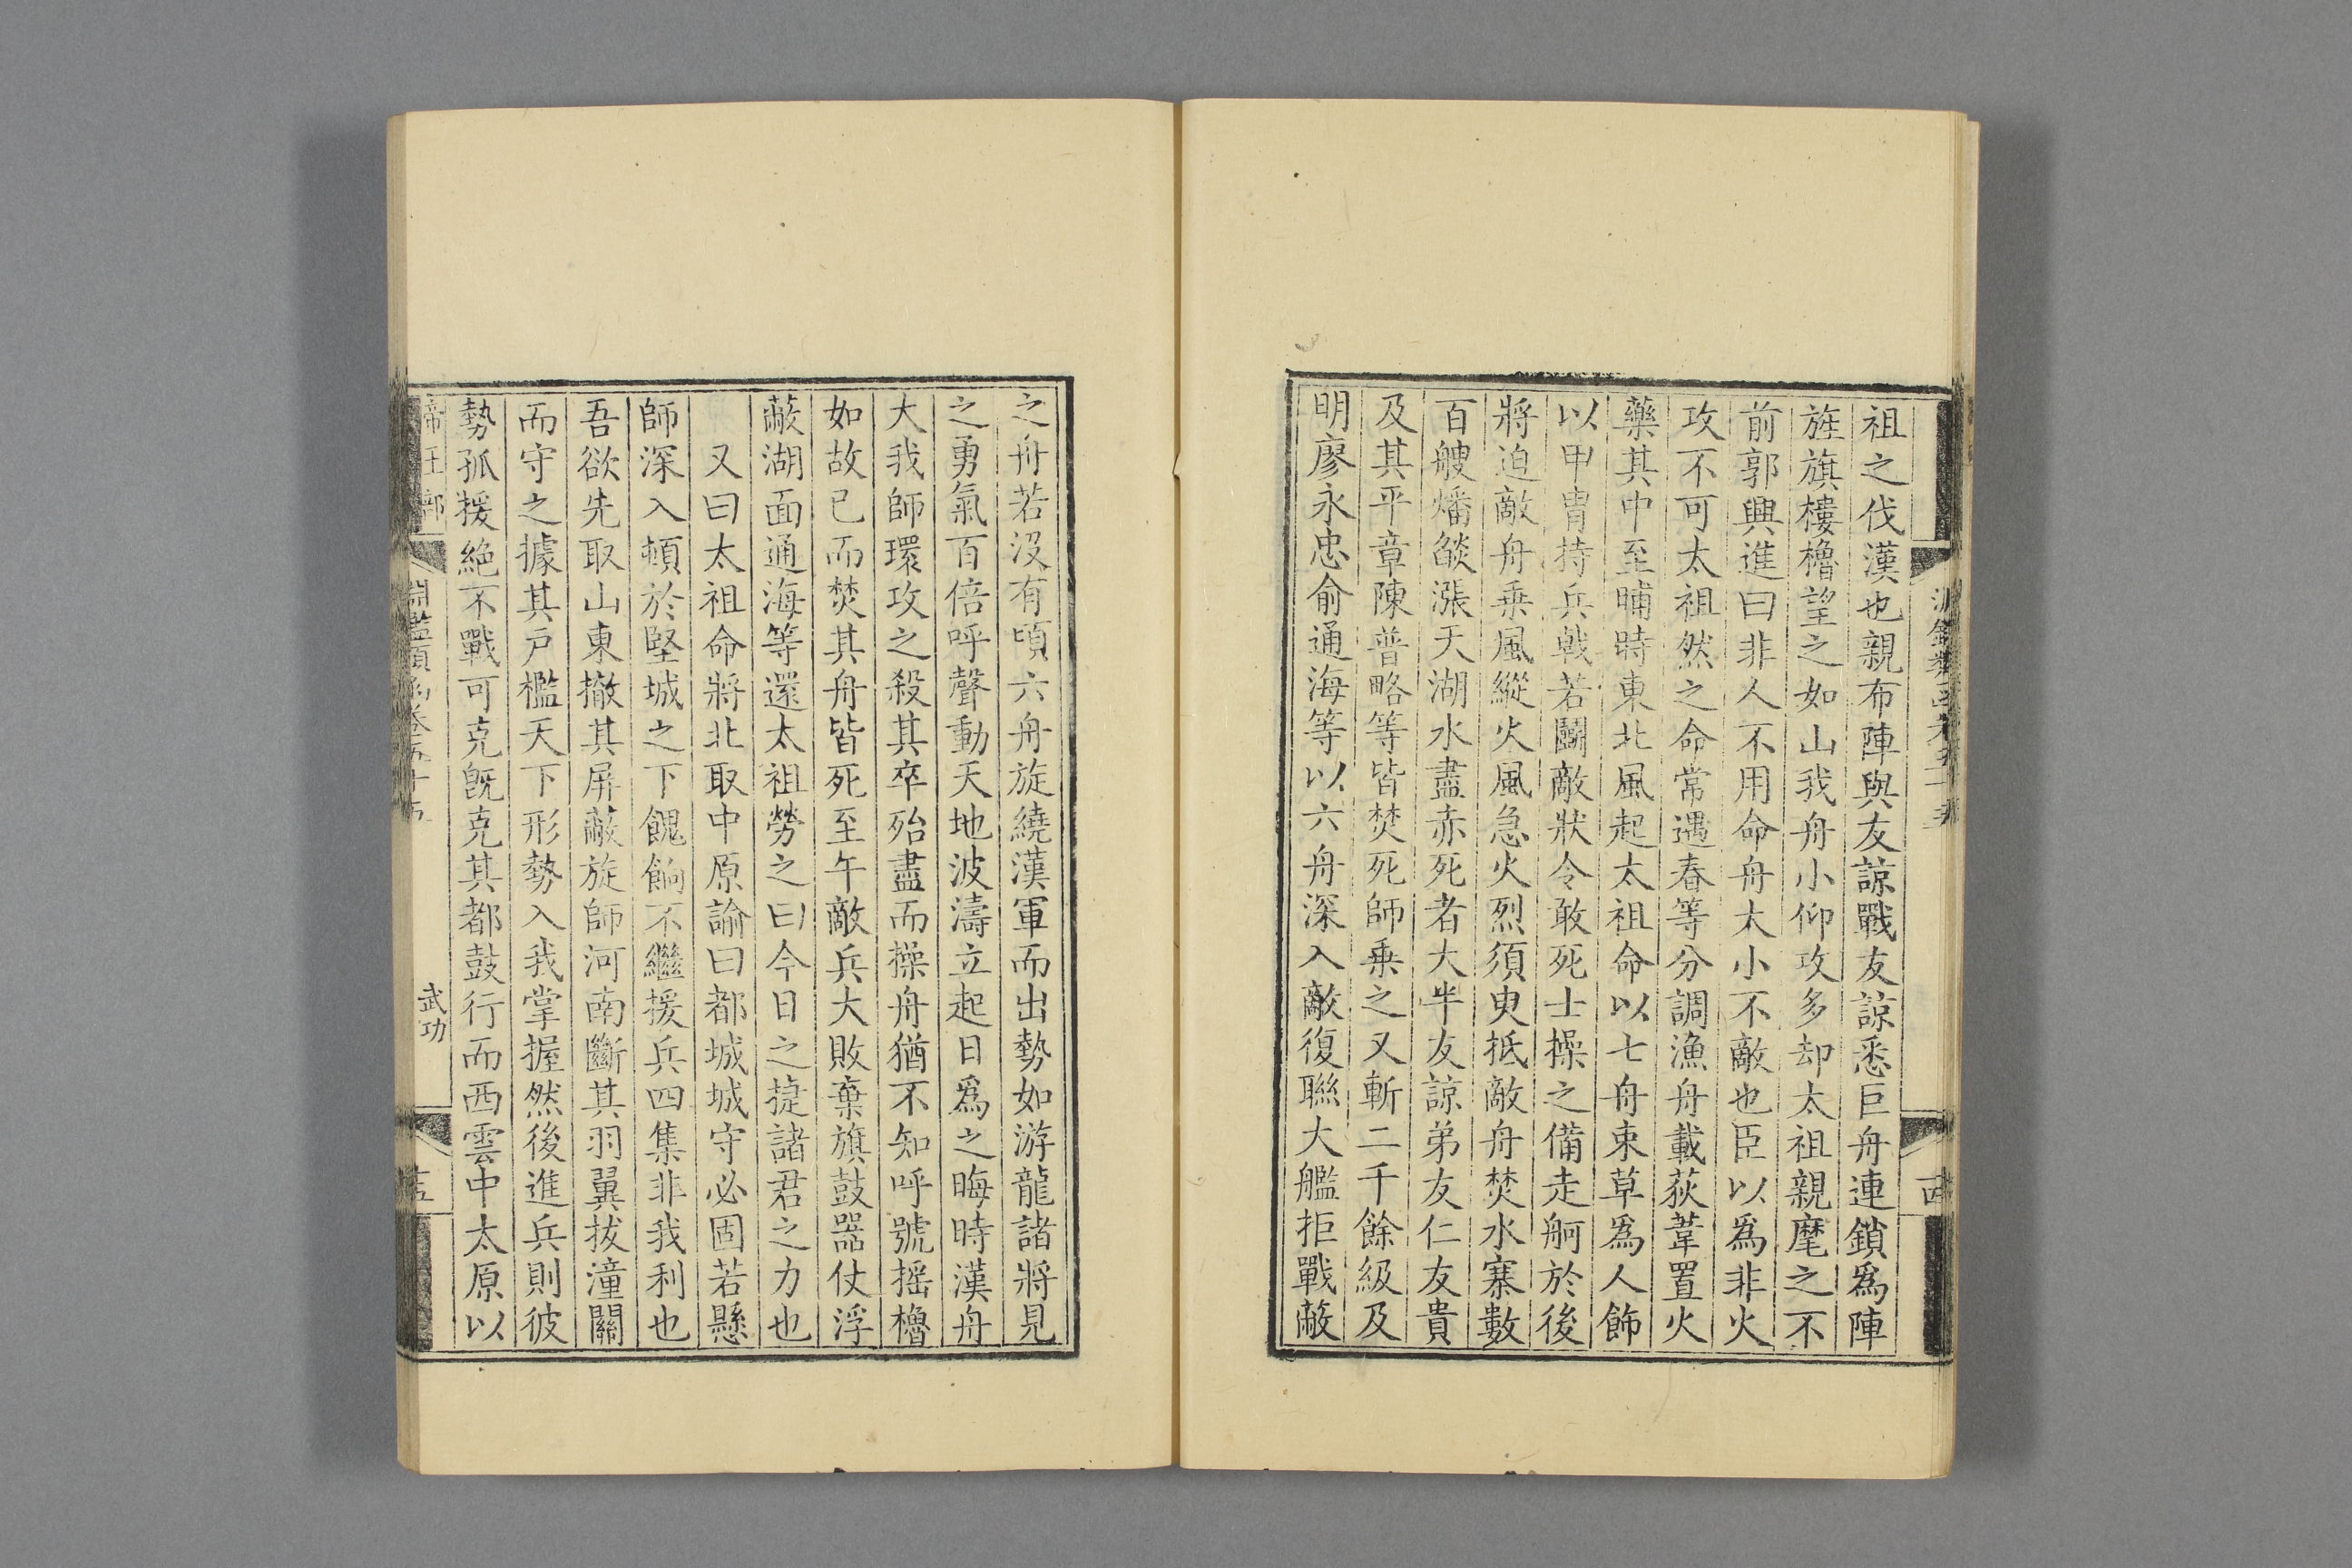 祖之伐漢也親布陣與友諒戰友諒悉巨舟連鎖爲陣
旌旗樓櫓望之如山我舟小仰攻多却太祖親麾之不
前郭興進曰非人不用命舟大小不敵也臣以爲非火
攻不可太祖然之命常遇春等分調漁舟載荻葦置火
藥其中至晡時東北風起太祖命以七舟束草爲人飾
以甲冑持兵戟若鬬敵狀令敢死士操之備走舸於後
將迫敵舟乗風縱火風急火烈須臾抵敵舟焚水寨數
百艘燔燄漲天湖水盡赤死者大半友諒弟友仁友貴
及其平章陳普略等皆焚死師乗之又斬二千餘級及
明廖永忠俞通海等以六舟深入敵復聯大艦拒戰蔽
之舟若没有頃六舟旋繞漢軍而出勢如游龍諸將見
之勇氣百倍呼聲動天地波濤立起日爲之晦時漢舟
大我師環攻之殺其卒殆盡而操舟猶不知呼號摇櫓
如故已而焚其舟皆死至午敵兵大敗棄旗鼓器仗浮
蔽湖面通海等還太祖勞之曰今日之捷諸君之力也
又曰太祖命將北取中原諭曰都城城守必固若懸
師深入頓於堅城之下餽餉不繼援兵四集非我利也
吾欲先取山東撤其屏蔽旋師河南斷其羽翼拔潼關
而守之據其戸檻天下形勢入我掌握然後進兵則彼
勢孤援絶不戰可克旣克其都鼓行而西雲中太原以
帝王部
淵鑑類函卷五十五
武功